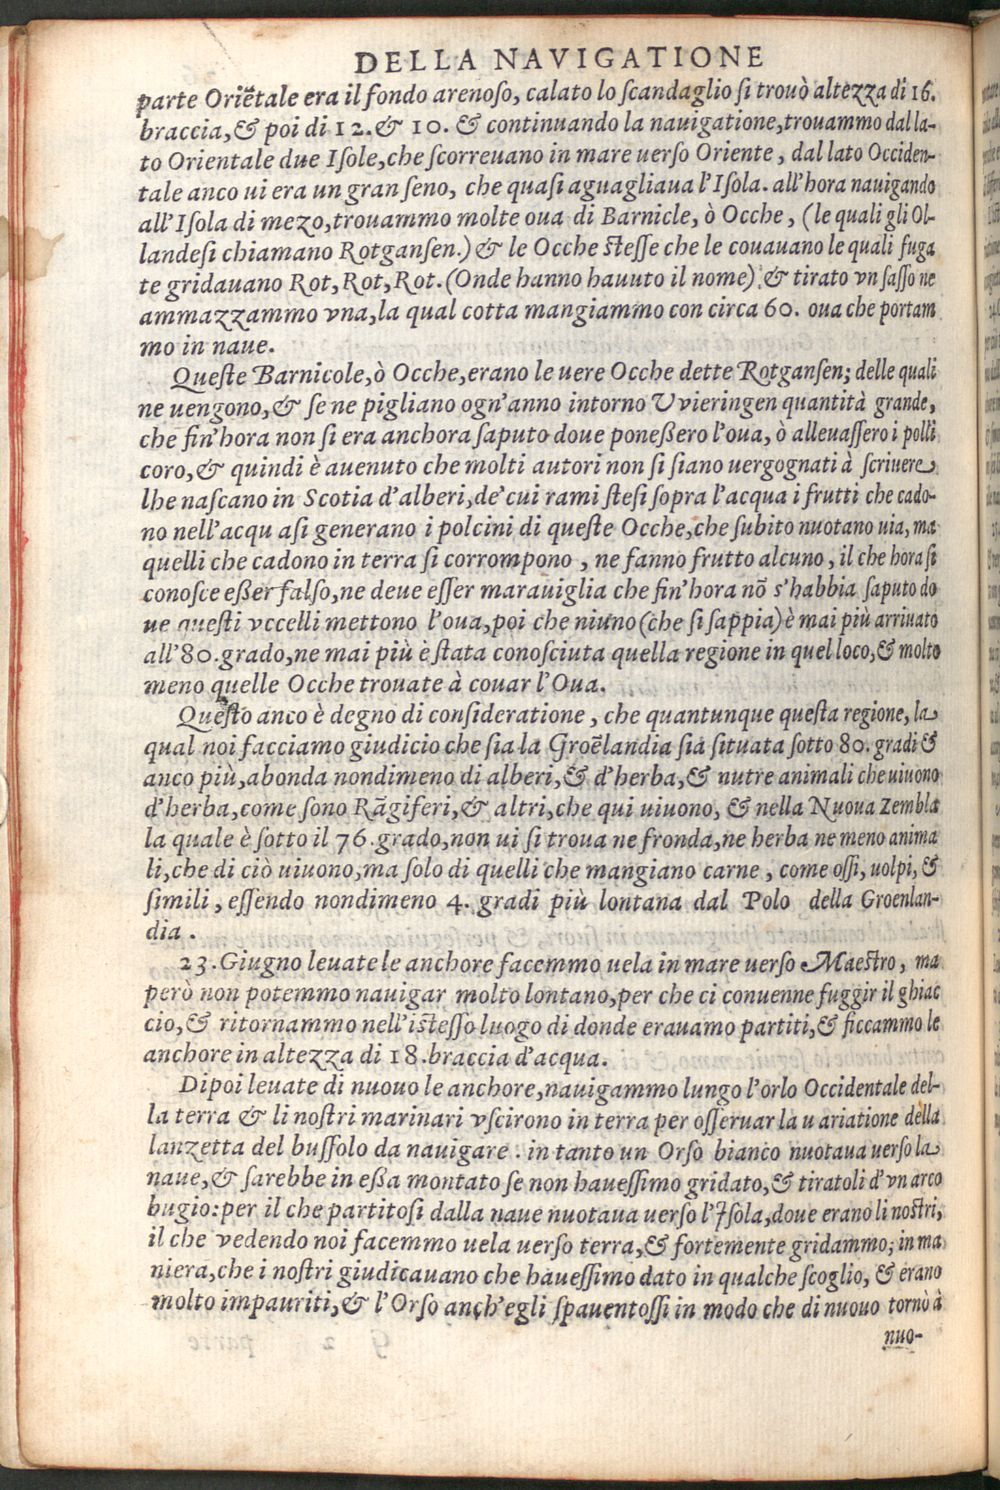 DELLA NAVIGATIONE
parte Oriẽtale era il fondo arenoso, calato lo scandaglio si trouò altezza di 16.
braccia, & poi di 12. & 10. & continuando la nauigatione, trouammo dal la-
to Orientale due Isole, che scorreuano in mare uerso Oriente, dal lato Occiden-
tale anco ui era un gran seno, che quasi aguagliaua l'Isola. all'hora nauigando
all'Isola di mezo, trouammo molte oua di Barnicle, ò Ocche, (le quali gli Ol-
landesi chiamano Rotgansen.) & le Ocche stesse che le couauano le quali fuga
te gridauano Rot, Rot, Rot. (Onde hanno hauuto il nome) & tirato vn sasso ne
ammazzammo vna, la qual cotta mangiammo con circa 60. oua che portam
mo in naue.
Queste Barnicole, ò Ocche, erano le uere Ocche dette Rotgansen; delle quali
ne uengono, & se ne pigliano ogn'anno intorno Vvieringen quantità grande,
che fin'hora non si era anchora saputo doue poneßero l'oua, ò alleuassero i polli
coro, & quindi è auenuto che molti autori non si siano uergognati à scriuere
lhe nascano in Scotia d'alberi, de' cui rami stesi sopra l'acqua i frutti che cado-
no nell'acqu asi generano i polcini di queste Ocche, che subito nuotano uia, ma
quelli che cadono in terra si corrompono, ne fanno frutto alcuno, il che hora si
conosce eßer falso, ne deue esser marauiglia che fin'hora nõ s'habbia saputo do
ue questi vccelli mettono l'oua, poi che niuno (che si sappia) è mai più arriuato
all'80. grado, ne mai più è stata conosciuta quella regione in quel loco, & molto
meno quelle Ocche trouate à couar l'Oua.
Questo anco è degno di consideratione, che quantunque questa regione, la
qual noi facciamo giudicio che sia la Groẽlandia sia situata sotto 80. gradi &
anco più, abonda nondimeno di alberi, & d'herba, & nutre animali che uiuono
d'herba, come sono Rãgiferi, & altri, che qui uiuono, & nella Nuoua Zembla
la quale è sotto il 76. grado, non ui si troua ne fronda, ne herba ne meno anima
li, che di ciò uiuono, ma solo di quelli che mangiano carne, come ossi, uolpi, &
simili, essendo nondimeno 4. gradi più lontana dal Polo della Groenlan-
dia.
23. Giugno leuate le anchore facemmo uela in mare uerso Maestro, ma
però non potemmo nauigar molto lontano, per che ci conuenne fuggir il ghiac
cio, & ritornammo nell'istesso luogo di donde erauamo partiti, & ficcammo le
anchore in altezza di 18. braccia d'acqua.
Dipoi leuate di nuouo le anchore, nauigammo lungo l'orlo Occidentale del-
la terra & li nostri marinari vscirono in terra per osseruar la u ariatione della
lanzetta del bussolo da nauigare. in tanto un Orso bianco nuotaua uerso la
naue, & sarebbe in eßa montato se non hauessimo gridato, & tiratoli d'vn arco
bugio: per il che partitosi dalla naue nuotaua uerso l'Isola, doue erano li nostri,
il che vedendo noi facemmo uela uerso terra, & fortemente gridammo; in ma
niera, che i nostri giudicauano che hauessimo dato in qualche scoglio, & erano
molto impauriti, & l'Orso anch'egli spauentossi in modo che di nuouo tornò à
nuo-